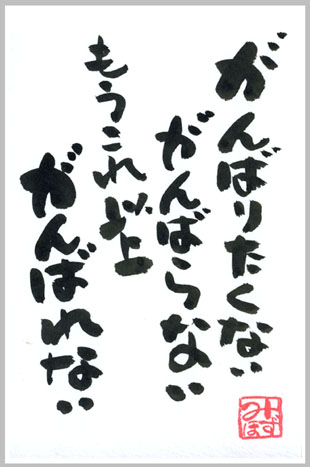 がんばりたくない
がんばらない
もうこれ以上
がんばれない
みずほ